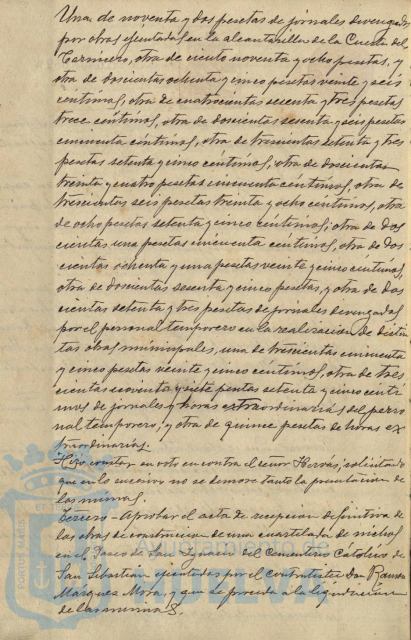 Una de noventa y dos pesetas de jornales devengados
por obras ejecutadas en la alcantarilla de la Cuesta del
Carnicero, otra de ciento noventa y ocho pesetas, y
otra de doscientas ochenta y cinco pesetas veinte y seis
centimos, otra de cuatrocientas sesenta y tres pesetas
trece céntimos, otra de doscientas sesenta y seis pesetas
cincuenta céntimos, otra de trescientas setenta y tres
pesetas setenta y cinco céntimos, otra de doscientas
treinta y cuatro pesetas cincuenta céntimos, otra de
trescientas seis pesetas treinta y ocho centimos, otra
de ocho pesetas setenta y cinco céntimos, otra de dos
cientas una pesetas cincuenta centimos, otra de dos
cientas ochenta y una pesetas veinte y cinco céntimos,
otra de doscientas sesenta y cinco pesetas, y otra de dos
cientas setenta y tres pesetas de jornales devengados
por el personal temporero en la realizacion de distin
tas obras municipales, una de trescientas cincuenta
y cinco pesetas veinte y cinco céntimos, otra de tres
cientas noventa y siete pesetas setenta y cinco cénti
mos de jornales y horas extraordinarias del perso
nal temporero, y otra de quince pesetas de horas ex
traordinarias.
Hizo constar su voto en contra el señor Hervás, solicitando
que en lo sucesivo no se demore tanto la presentacion de
las mismas.
Tercero - Aprobar el acta de recepcion definitiva de
las obras de construccion de una cuartelada de nichos
en el Paseo de San Ignacio del Cementerio Catolico de
San Sebastian ejecutadas por el contratista Don Ramon
Marquez Mora, y que se proceda a la liquidacion
de las mismas.
PORTUS MARIS
HUELVA